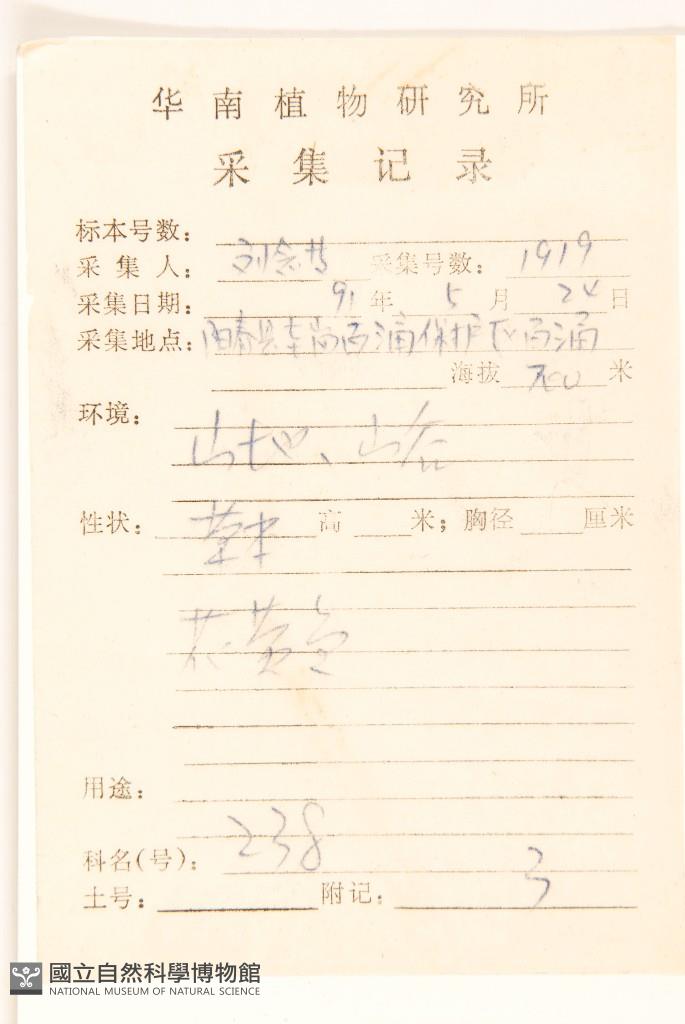 华南植物研究所
采集记录
标本号数：
采集人：刘念 采集号数：1919
采集日期：91年5月24日
采集地点：阳春县 保护区
海拔 700 米
环境：
山地、山谷
性状：草本 高 米；胸径 厘米
花黄色
用途：
科名(号)：238
土号： 附记：3
國立自然科學博物館
NATIONAL MUSEUM OF NATURAL SCIENCE